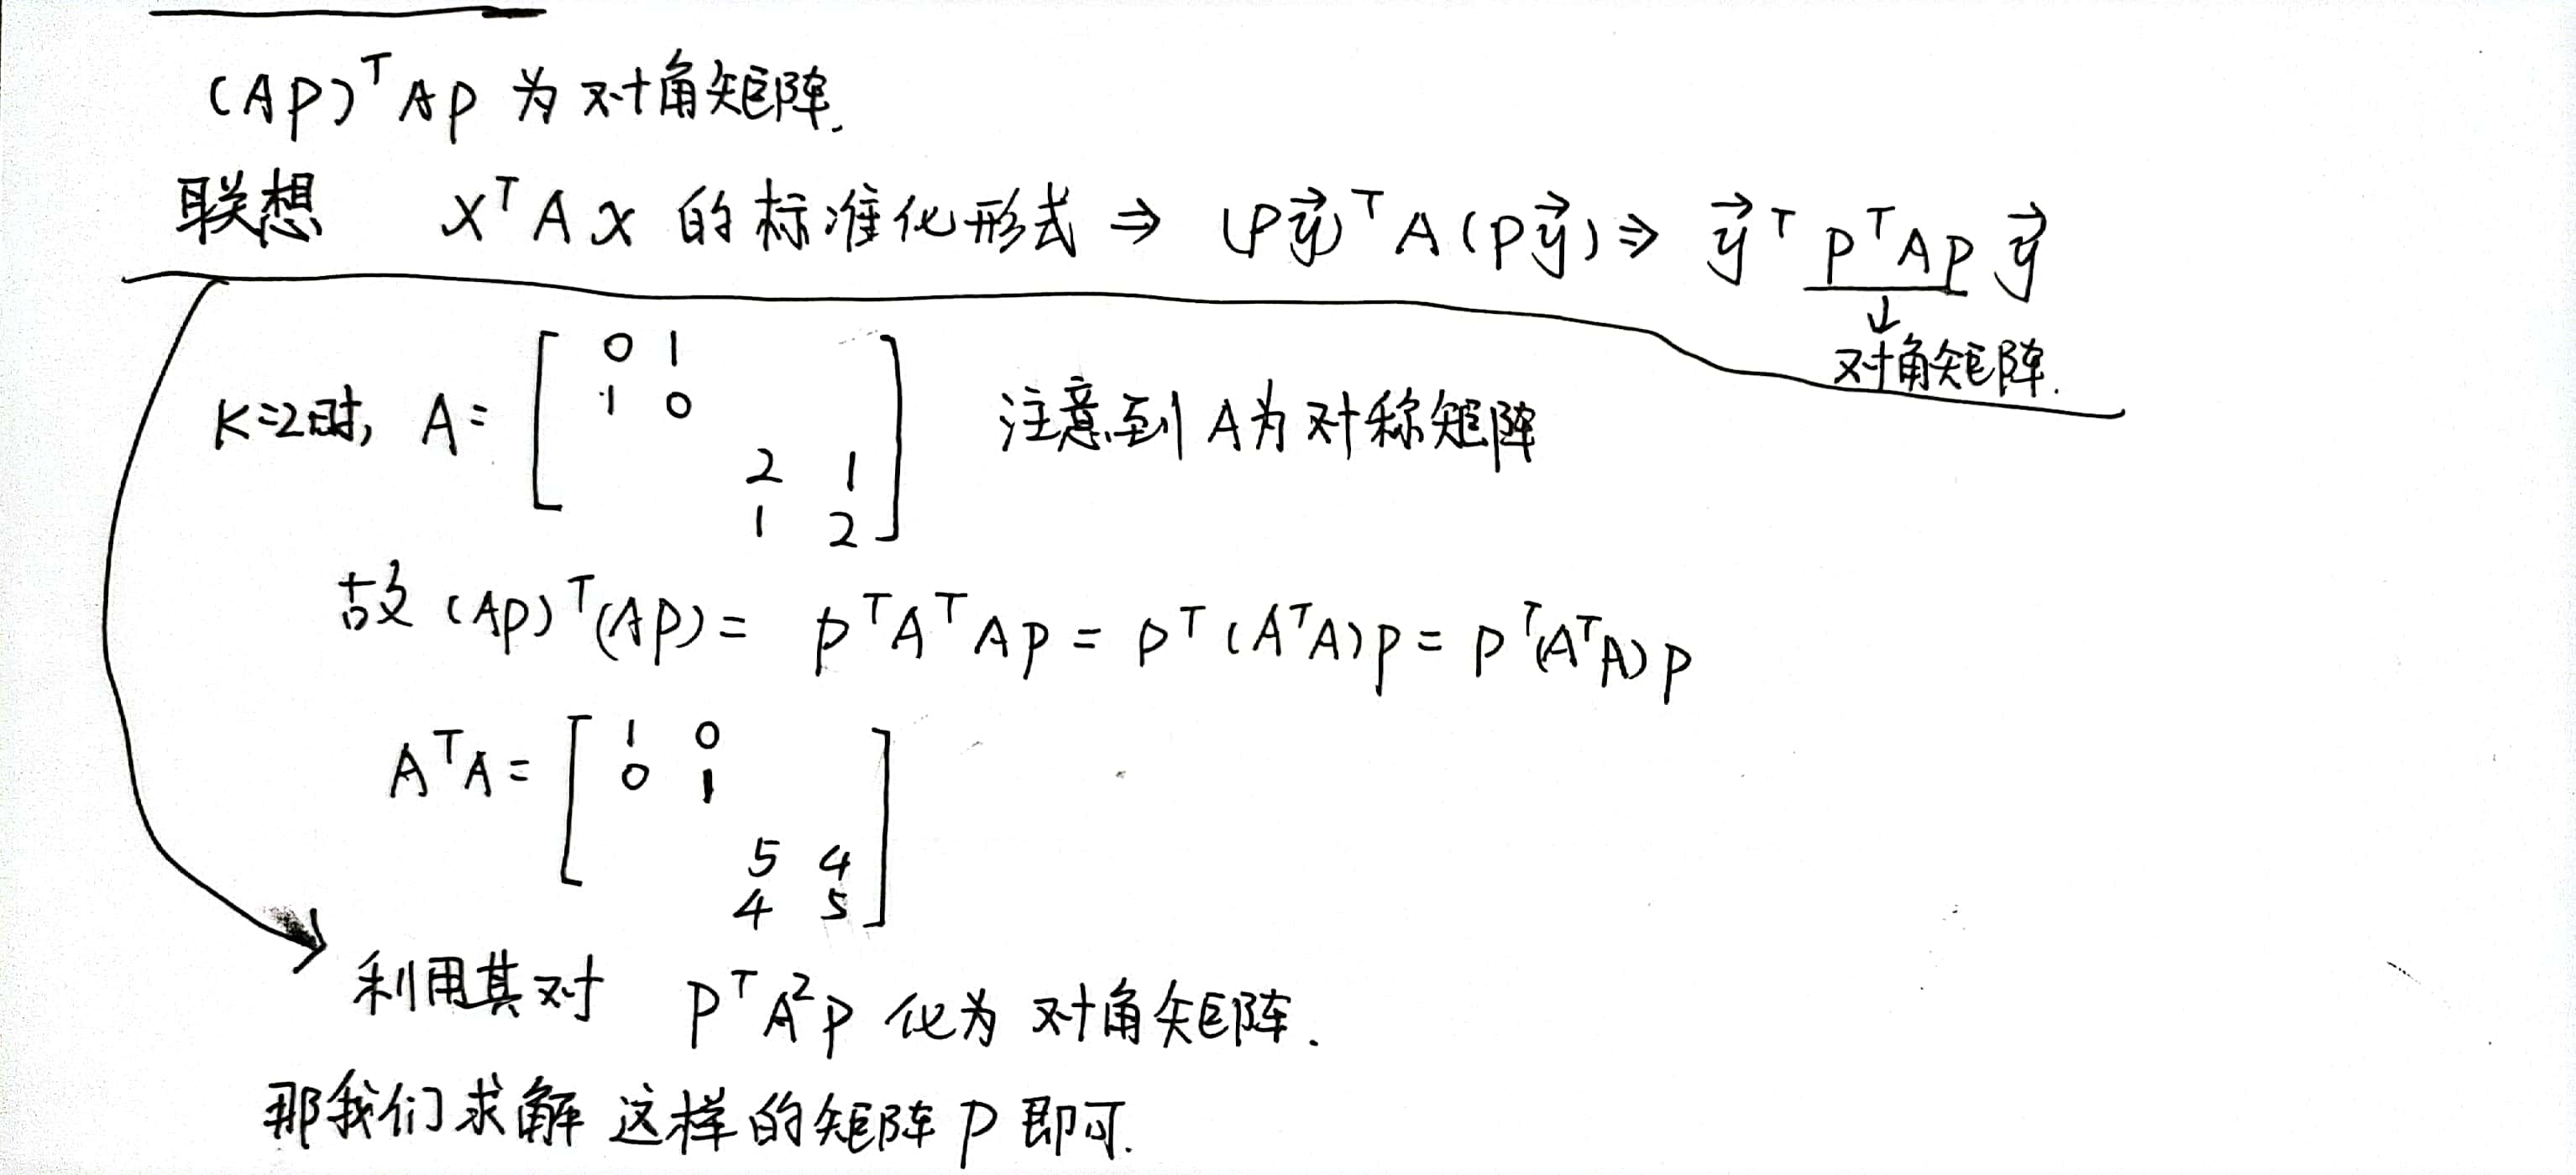 (AP)ᵀAP 为对角矩阵.
联想 xᵀAx 的标准化形式 ⇒ (Py⃗)ᵀA(Py⃗) ⇒ y⃗ᵀPᵀAPy⃗
↓
对角矩阵.
K=2时, A= [ 0 1
1 0
2 1
1 2 ] 注意到 A为对称矩阵
故 (AP)ᵀ(AP) = PᵀAᵀAP = Pᵀ(AᵀA)P = Pᵀ(AᵀA)P
AᵀA = [ 1 0
0 1
5 4
4 5 ]
利用其对 PᵀA²P 化为 对角矩阵.
那我们求解 这样的矩阵 P 即可.